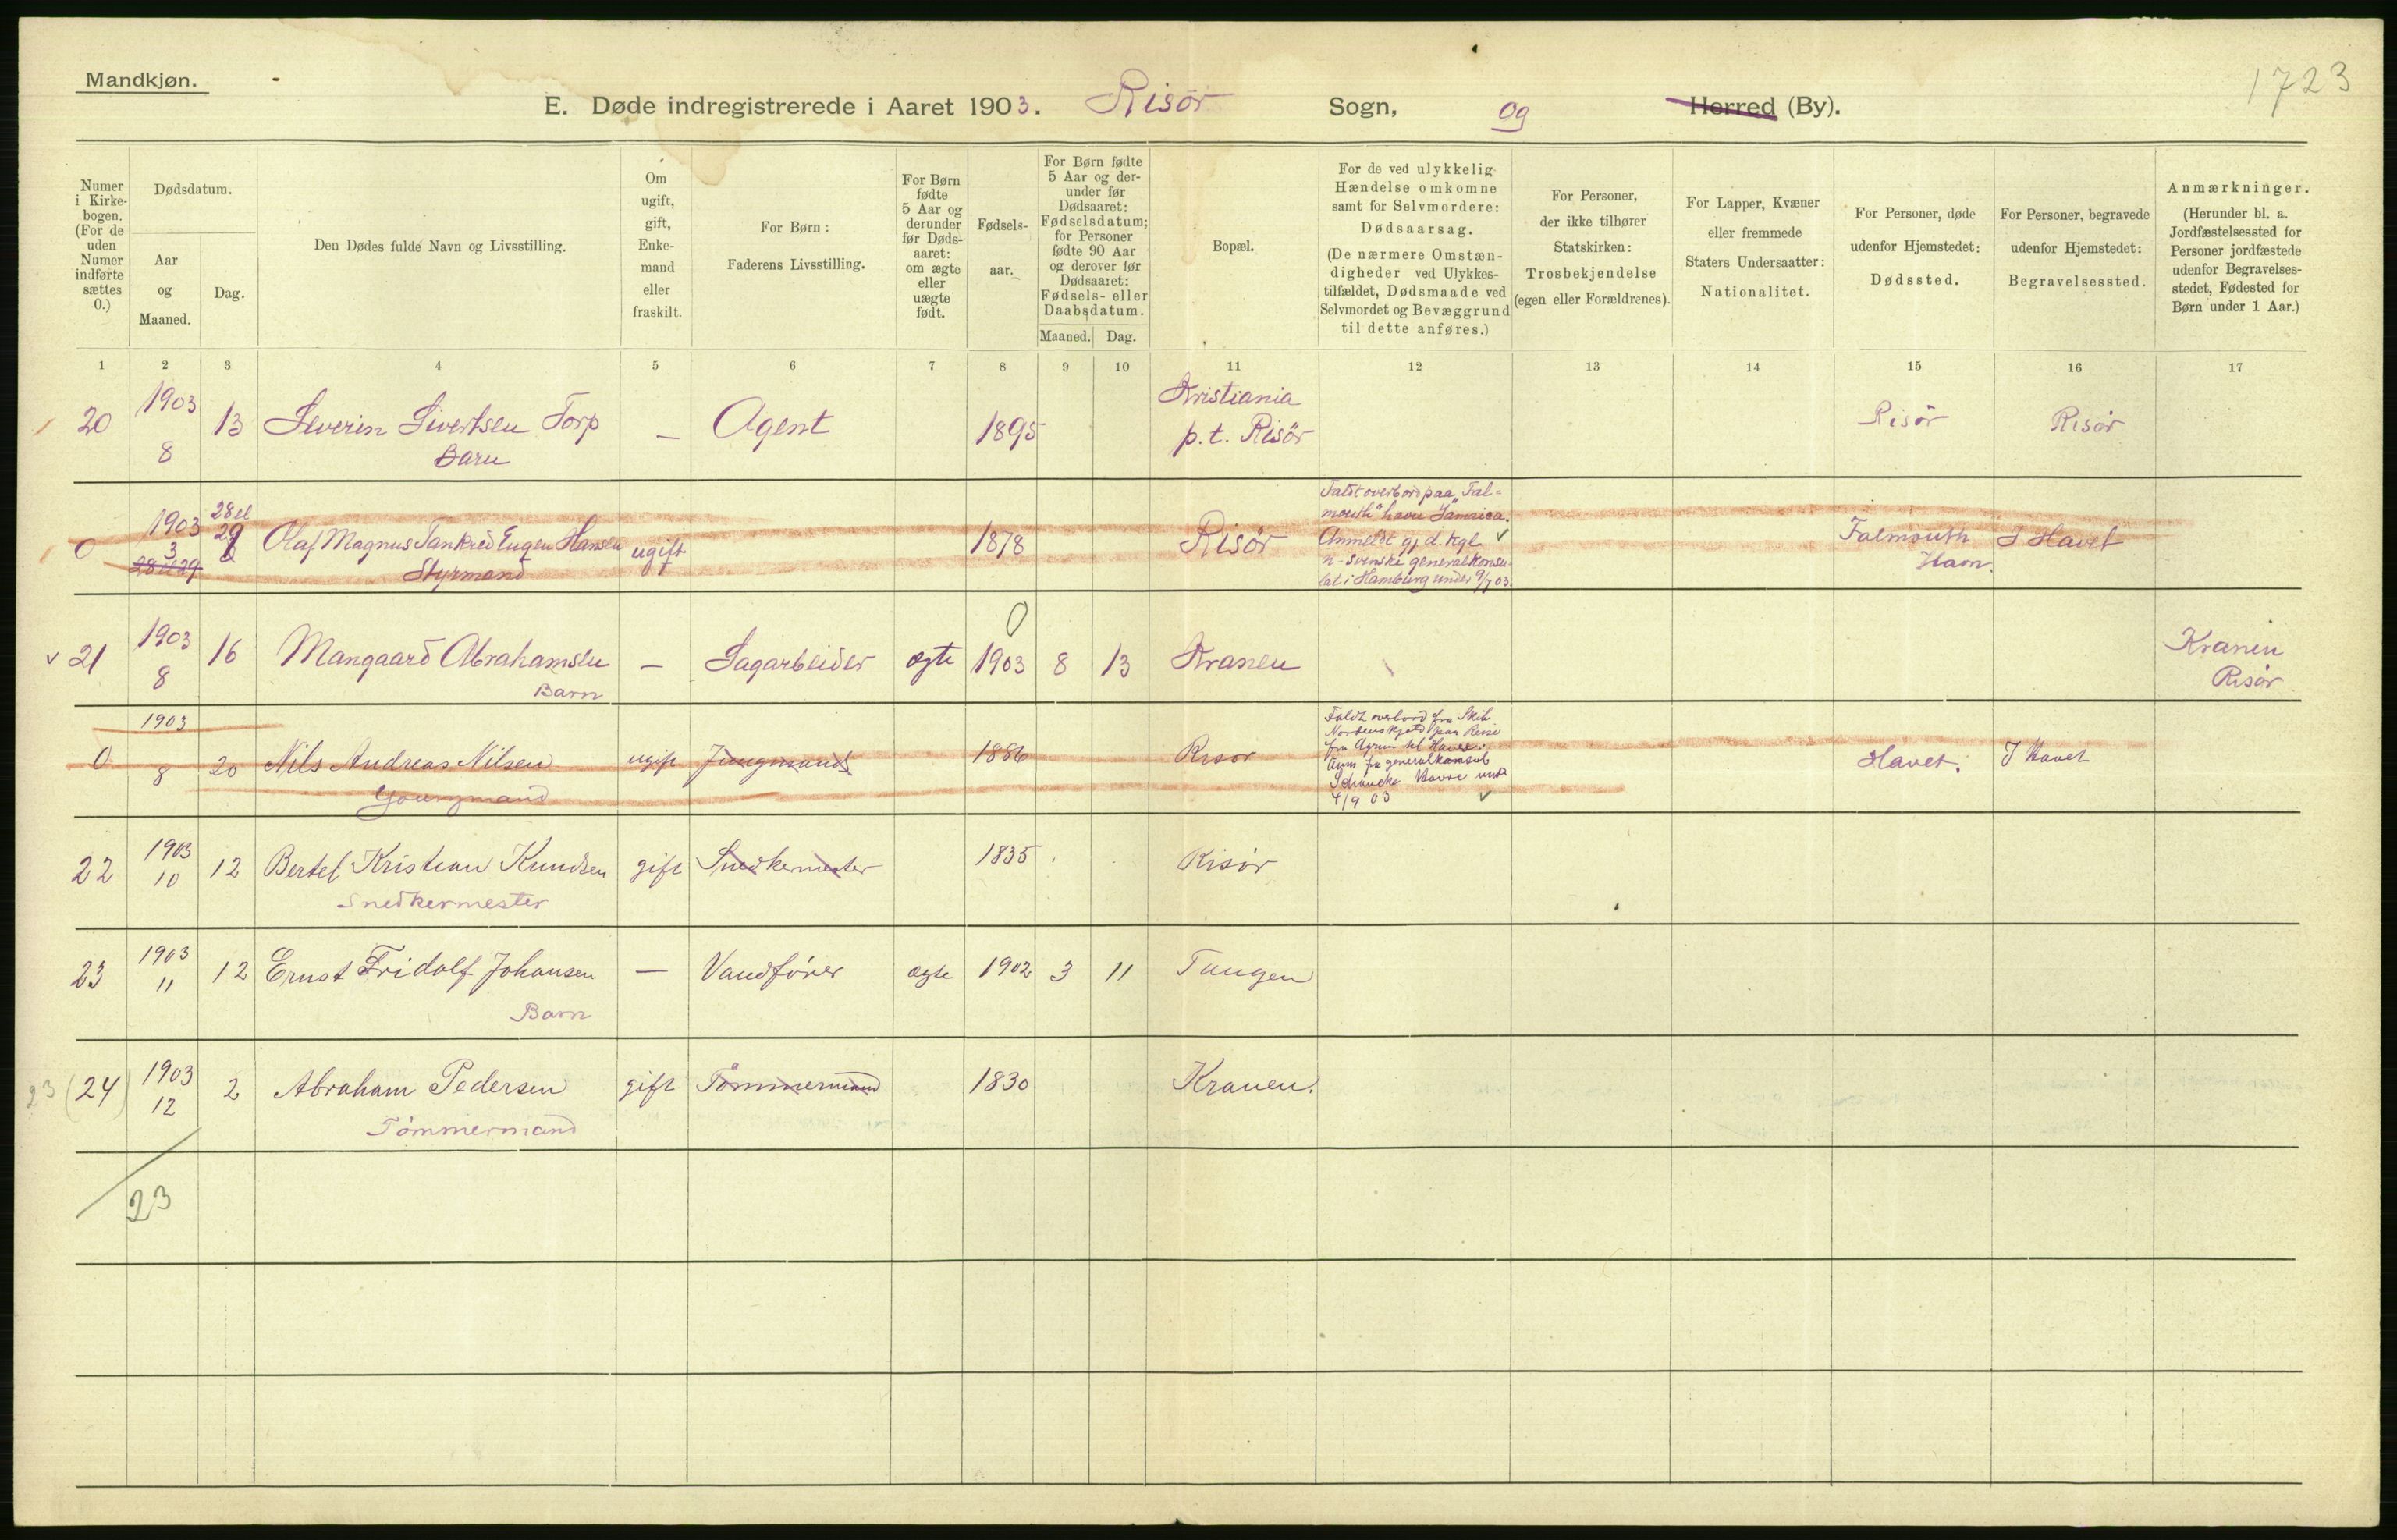 Mandkjøn.
1723
E. Døde indregistrerede i Aaret 1903. Risör Sogn, og Herred (By).
Numer i Kirke-bogen. (For de uden Numer indførte sættes 0.)
Dødsdatum.
Aar og Maaned.
Dag.
Den Dødes fulde Navn og Livsstilling.
Om ugift, gift, Enke-mand eller fraskilt.
For Børn:
Faderens Livsstilling.
For Børn fødte 5 Aar og derunder før Døds-aaret: om ægte eller uægte født.
Fødsels-aar.
For Børn fødte 5 Aar og der-under før Dødsaaret: Fødselsdatum; for Personer fødte 90 Aar og derover før Dødsaaret: Fødsels- eller Daabsdatum.
Maaned. Dag.
Bopæl.
For de ved ulykkelig Hændelse omkomne samt for Selvmordere: Dødsaarsag.
(De nærmere Omstæn-digheder ved Ulykkes-tilfældet, Dødsmaade ved Selvmordet og Bevæggrund til dette anføres.)
For Personer, der ikke tilhører Statskirken: Trosbekjendelse (egen eller Forældrenes).
For Lapper, Kvæner eller fremmede Staters Undersaatter: Nationalitet.
For Personer, døde udenfor Hjemstedet: Dødssted.
For Personer, begravede udenfor Hjemstedet: Begravelsessted.
Anmærkninger.
(Herunder bl. a. Jordfæstelsessted for Personer jordfæstede udenfor Begravelses-stedet, Fødested for Børn under 1 Aar.)
1 2 3 4 5 6 7 8 9 10 11 12 13 14 15 16 17
20 1903 8 13 Severin Sivertsen Torp – Agent 1895 Kristiania p.t. Risör Risör Risör
Barn
0 1903 3 28 el 29 28 el 29 Olaf Magnus Tankred Eugen Hansen ugift 1878 Risör
Styrmand
Faldt overbord paa "Fal-
mouth" havn Jamaica.
Anmeldt gj. d. kgl.
n-svenske generalkonsu-
lat i Hamburg under 9/7 03.
Falmouth Havn. I Havet
21 1903 8 16 Mangaard Abrahamsen – Sagarbeider ægte 1903 8 13 Kranen Kranen Risör
0
Barn
0 1903 8 20 Nils Andreas Nilsen ugift Jungmand 1886 Risør
Youngmand
Faldt overbord fra Skib
Nordenskjold paa Reise
fra til Havre.
Anm fra generalkonsul
Havre und
4/9 03
Havet. I Havet
22 1903 10 12 Bertel Kristian Knudsen gift Snedkermester 1835 Risör
Snedkermester
23 1903 11 12 Ernst Fridolf Johansen – Vandfører ægte 1902 3 11 Tangen
Barn
23 (24) 1903 12 2 Abraham Pedersen gift Tømmermand 1830 Kranen.
Tømmermand
23